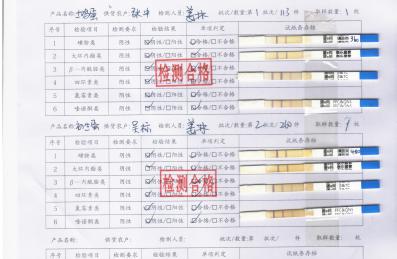 产品名称: 土鸡蛋 供货农户: 检测人员: 批次/数量: 第 1 批次/ 113 件 取样数量: 枚
序号 检验项目 检测要求 检验结果 单项判定 试纸条存档
1 磺胺类 阴性 ☑阴性/□阳性 ☑合格/□不合格
2 大环内酯类 阴性 ☑阴性/□阳性 ☑合格/□不合格
3 β-内酰胺类 阴性 ☑阴性/□阳性 ☑合格/□不合格
4 四环素类 阴性 ☑阴性/□阳性 ☑合格/□不合格
5 氯霉素类 阴性 ☑阴性/□阳性 ☑合格/□不合格
6 喹诺酮类 阴性 ☑阴性/□阳性 ☑合格/□不合格
检测合格
产品名称: 供货农户: 检测人员: 批次/数量: 第 2 批次/ 260 件 取样数量: 枚
序号 检验项目 检测要求 检验结果 单项判定 试纸条存档
1 磺胺类 阴性 ☑阴性/□阳性 ☑合格/□不合格
2 大环内酯类 阴性 ☑阴性/□阳性 ☑合格/□不合格
3 β-内酰胺类 阴性 ☑阴性/□阳性 ☑合格/□不合格
4 四环素类 阴性 ☑阴性/□阳性 ☑合格/□不合格
5 氯霉素类 阴性 ☑阴性/□阳性 ☑合格/□不合格
6 喹诺酮类 阴性 ☑阴性/□阳性 ☑合格/□不合格
检测合格
产品名称: 供货农户: 检测人员: 批次/数量: 第 批次/ 件 取样数量: 枚
序号 检验项目 检测要求 检验结果 单项判定 试纸条存档